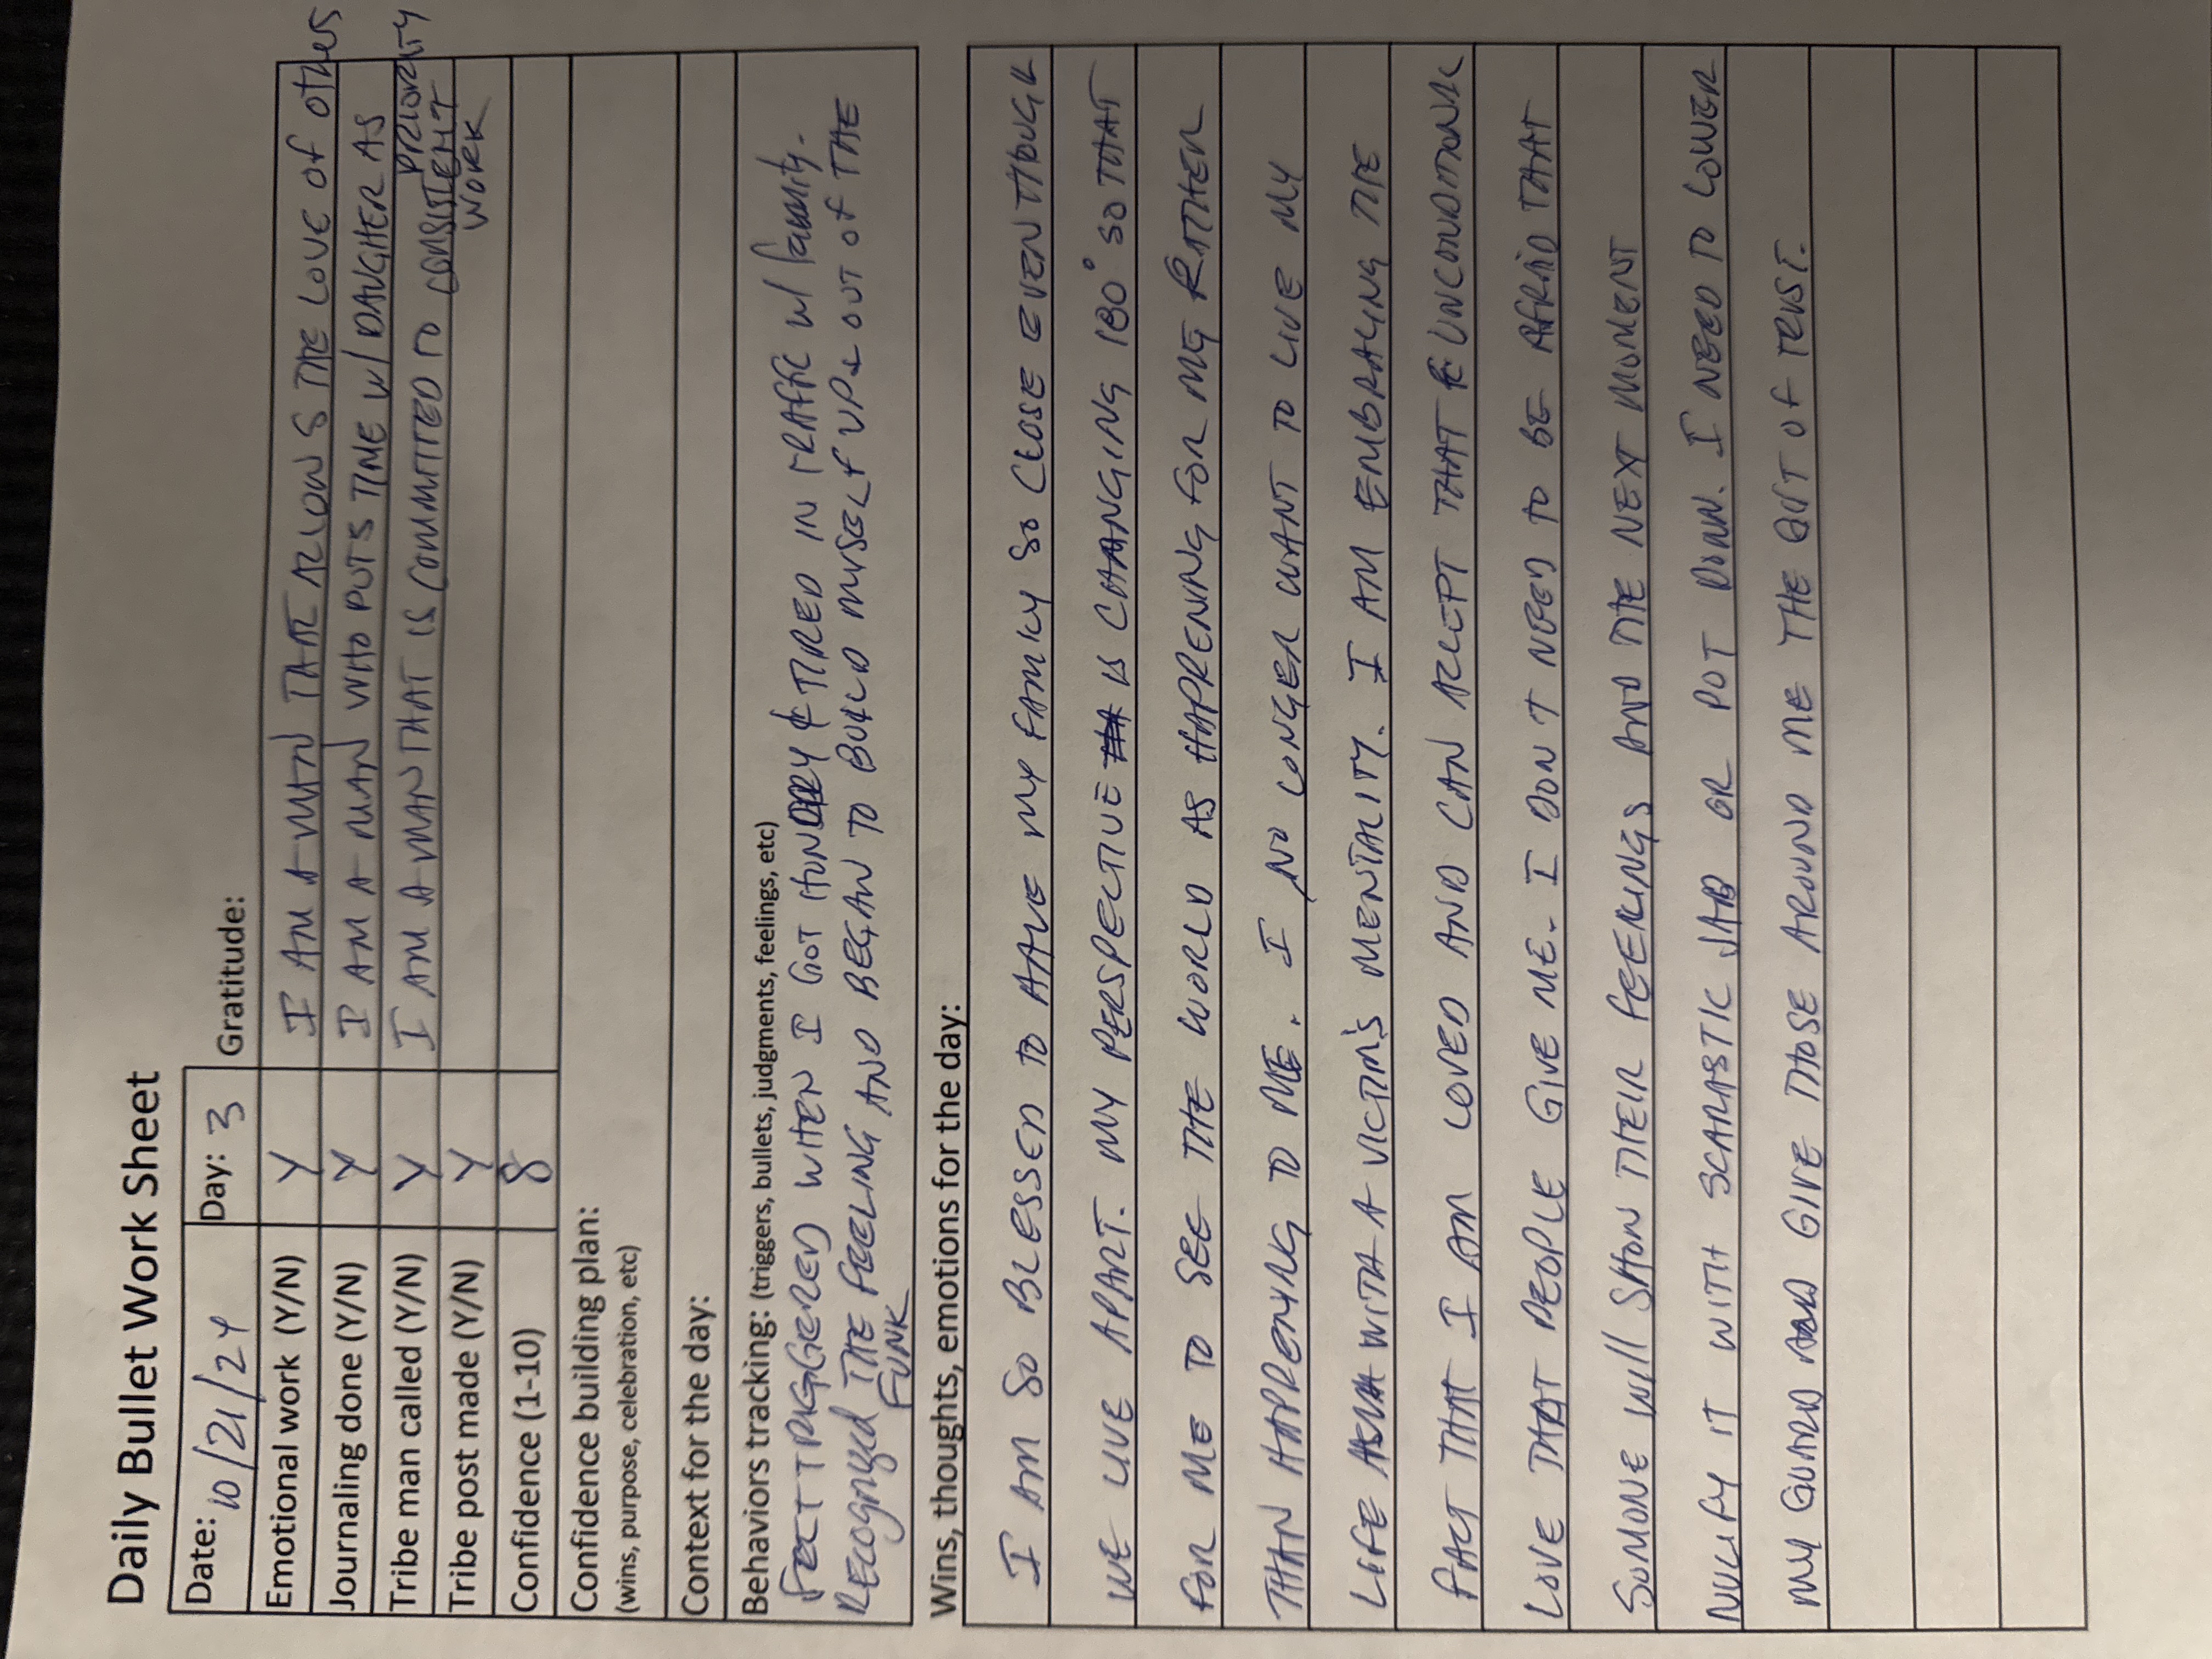 Daily Bullet Work Sheet
Date: 10/21/24 Day: 3 Gratitude:
Emotional work (Y/N) Y I AM A MAN THAT ALLOWS THE LOVE OF others
Journaling done (Y/N) Y I AM A MAN WHO PUTS TIME W/ DAUGHTER AS PRIORITY
Tribe man called (Y/N) Y I AM A MAN THAT IS COMMITTED TO CONSISTENT
WORK
Tribe post made (Y/N) Y
Confidence (1-10) 8
Confidence building plan:
(wins, purpose, celebration, etc)
Context for the day:
Behaviors tracking: (triggers, bullets, judgments, feelings, etc)
FELT TRIGGERED WHEN I GOT HUNGRY & TIRED IN TRAFFIC W/ family.
RECOGNIZED THE FEELING AND BEGAN TO BUILD MYSELF UP & OUT OF THE
FUNK
Wins, thoughts, emotions for the day:
I AM SO BLESSED TO HAVE MY FAMILY SO CLOSE EVEN THOUGH
WE LIVE APART. MY PERSPECTIVE IS CHANGING 180° SO THAT
FOR ME TO SEE THE WORLD AS HAPPENING FOR ME RATHER
THAN HAPPENING TO ME. I NO LONGER WANT TO LIVE MY
LIFE WITH A VICTIM'S MENTALITY. I AM EMBRACING THE
FACT THAT I AM LOVED AND CAN ACCEPT THAT UNCONDITIONAL
LOVE THAT PEOPLE GIVE ME. I DON'T NEED TO BE AFRAID THAT
SOMONE WILL SHOW THEIR FEELINGS AND THE NEXT MOMENT
NULIFY IT WITH SCARASTIC JAB OR PUT DOWN. I NEED TO LOWER
MY GUARD AND GIVE THOSE AROUND ME THE GIFT OF TRUST.